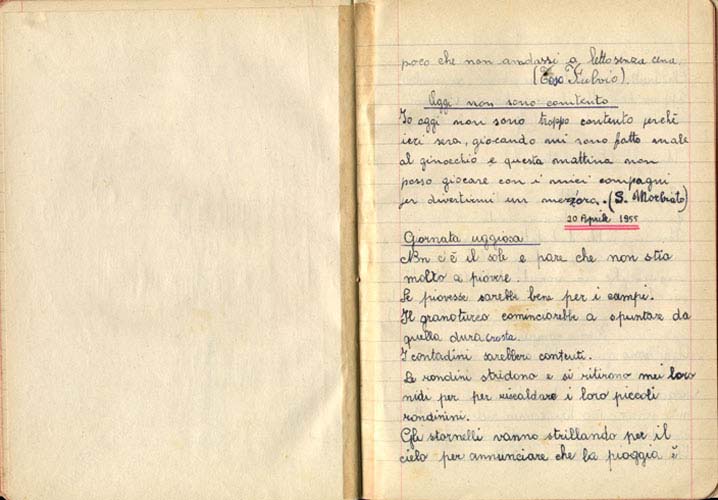 poco che non andassi a letto senza cena.
(Toso Fulvio).
Oggi non sono contento
Io oggi non sono troppo contento perchè
ieri sera, giocando mi sono fatto male
al ginocchio e questa mattina non
posso giocare con i miei compagni
per divertirmi un mezz'ora. (S. Morbiato)
20 Aprile 1955
Giornata uggiosa
Non c'è il sole e pare che non stia
molto a piovere.
Se piovesse sarebbe bene per i campi.
Il granoturco comincierebbe a spuntar da
quella dura crosta.
I contadini sarebbero contenti.
Le rondini stridono e si ritirono nei loro
nidi per per riscaldare i loro piccoli
rondinini.
Gli stornelli vanno strillando per il
cielo per annunciare che la pioggia è